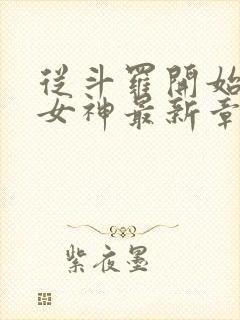 從斗羅開始
女神最新章
紫夜墨